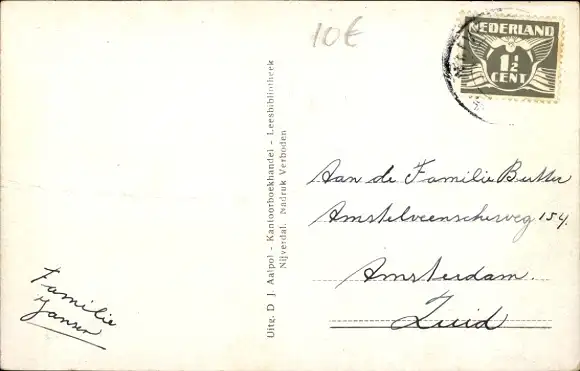 10€
NEDERLAND
1½
CENT
Aan de Familie Butter
Amstelveenscheweg 154.
Amsterdam.
Zuid
Familie
Jansen
Uitg. D. J. Aalpol - Kantoorboekhandel - Leesbibliotheek
Nijverdal. Nadruk Verboden